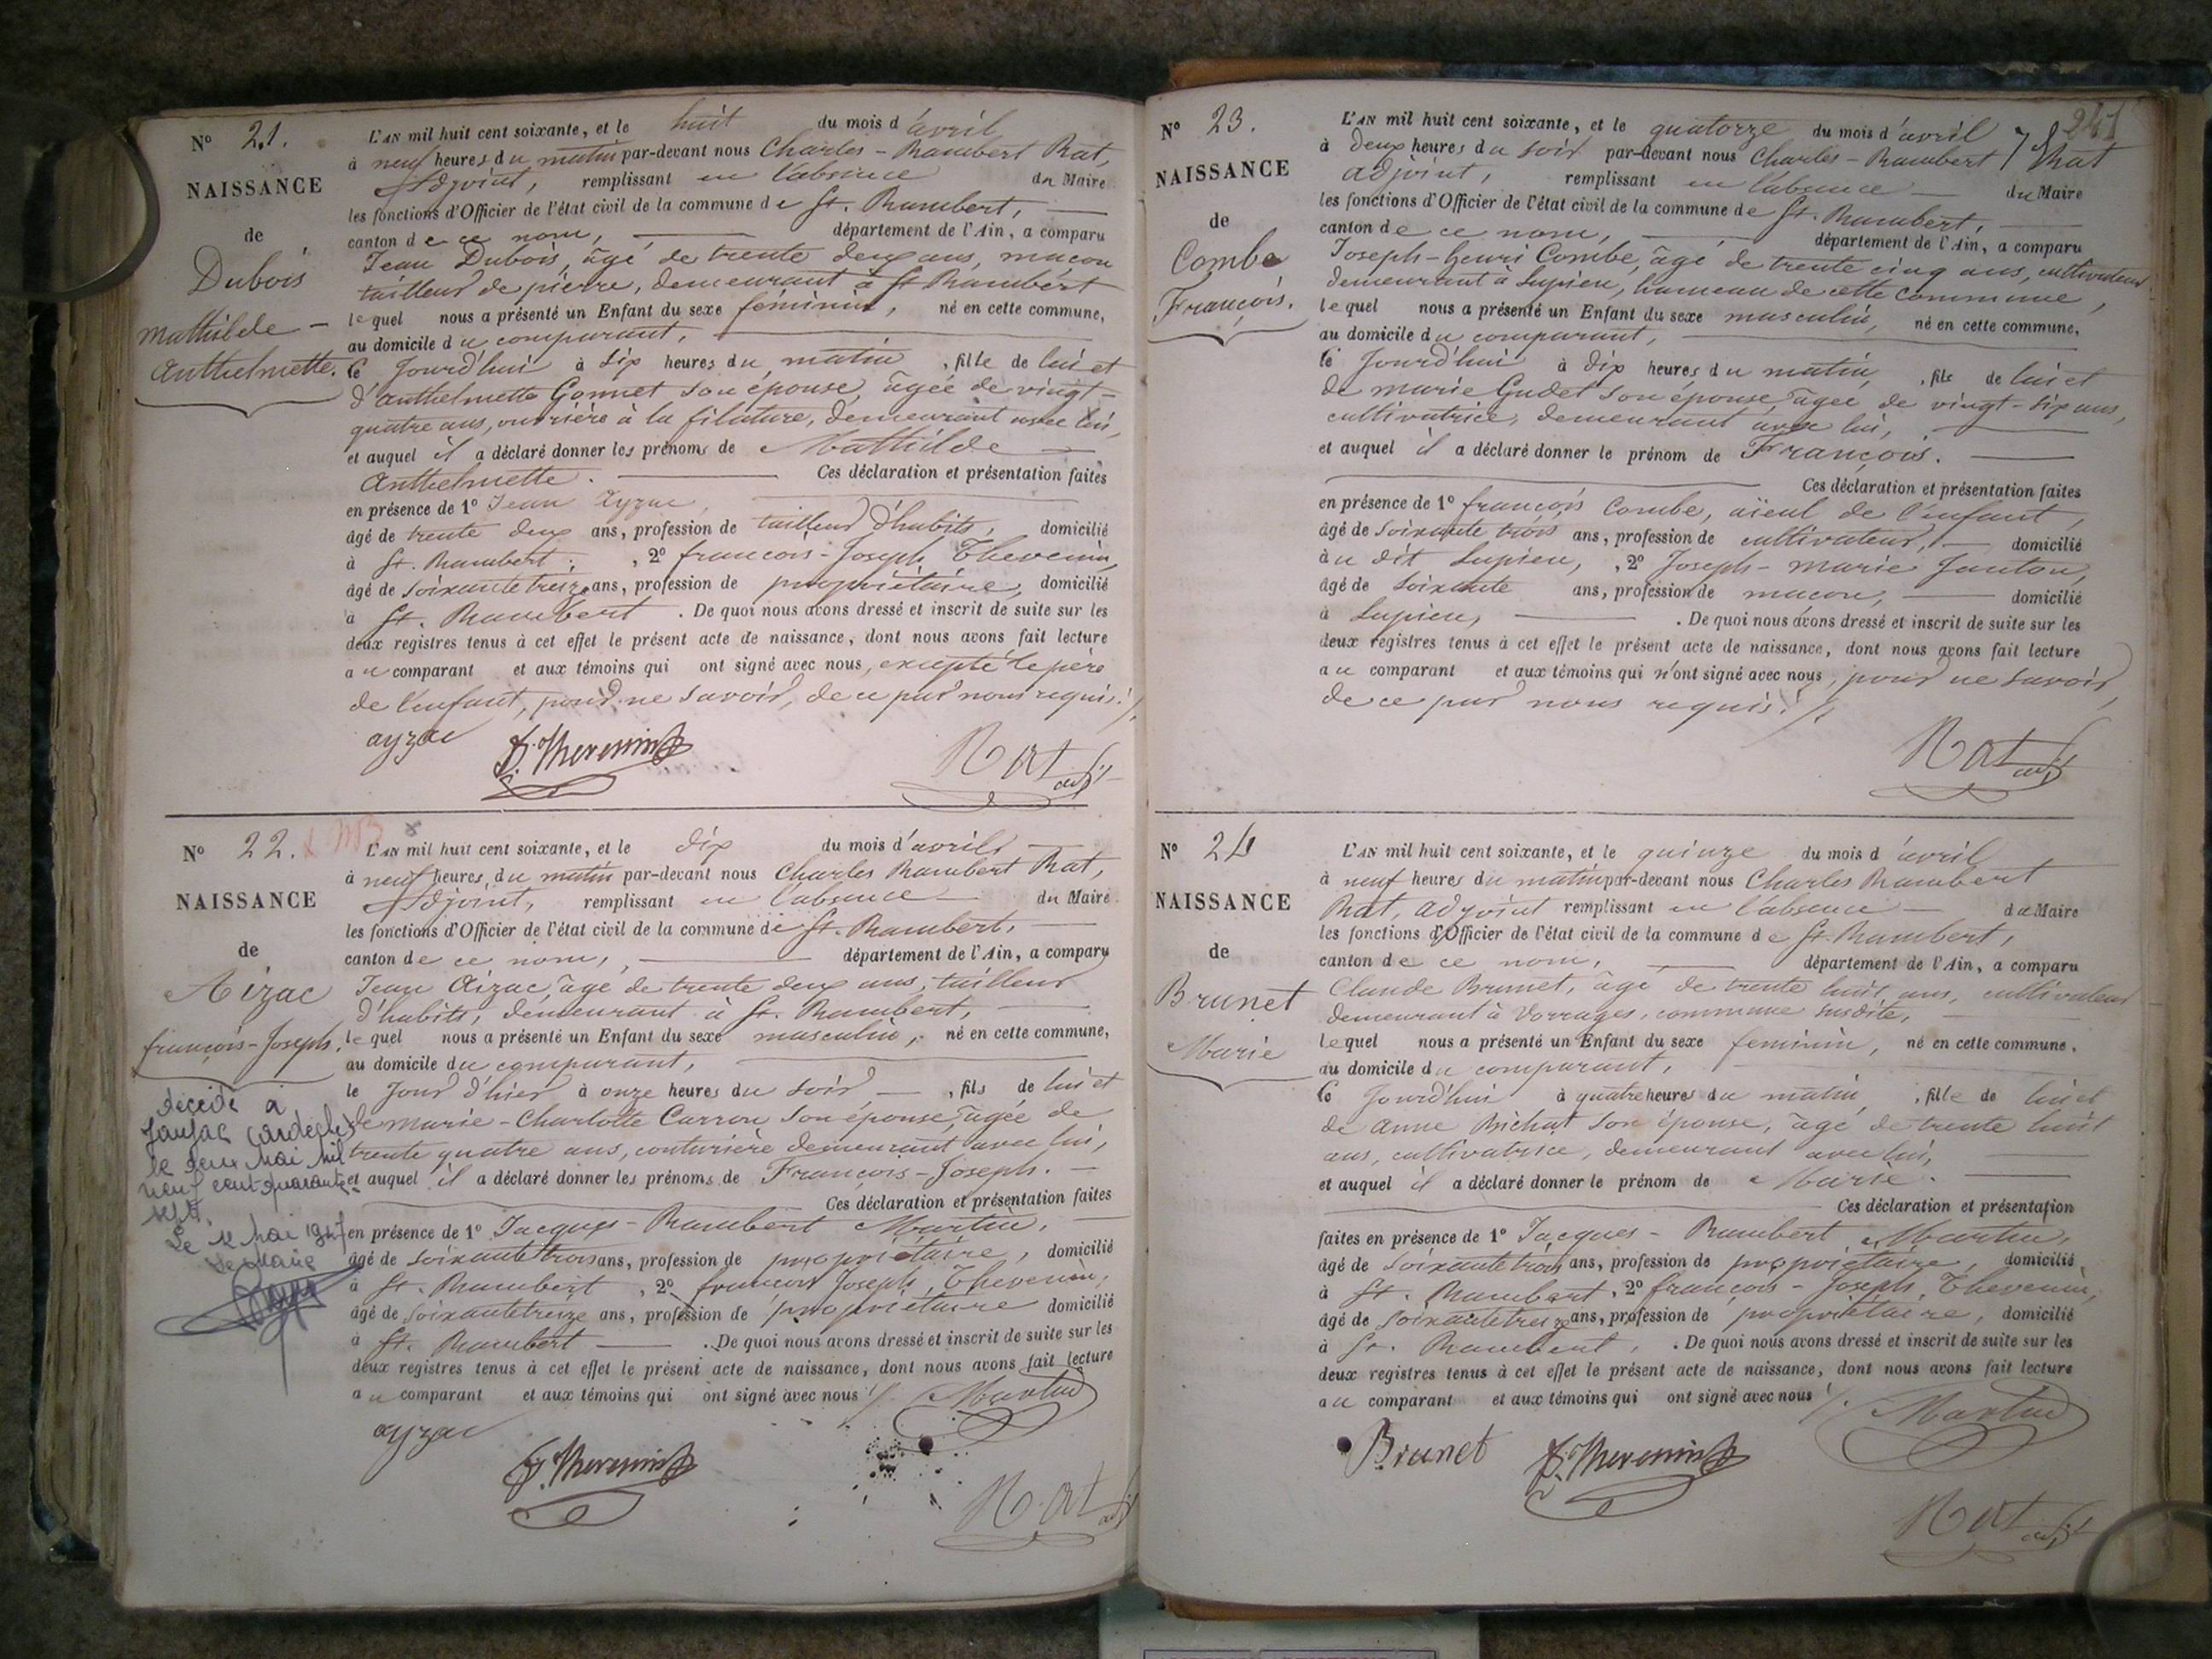 N° 21.
NAISSANCE
de
Dubois
Mathilde –
Anthelmette.
L'AN mil huit cent soixante, et le huit du mois d'avril
à neuf heures du matin par-devant nous Charles-Rambert Rat,
Adjoint, remplissant en l'absence du Maire
les fonctions d'Officier de l'état civil de la commune de St. Rambert,
canton de ce nom, département de l'Ain, a comparu
Jean Dubois, âgé de trente deux ans, maçon
tailleur de pierre, demeurant à St Rambert
lequel nous a présenté un Enfant du sexe féminin, né en cette commune,
au domicile du comparant,
le Jourd'hui à six heures du matin, fille de lui et
d'anthelmette Gonnet son épouse, âgée de vingt-
quatre ans, ouvrière à la filature, demeurant avec lui,
et auquel il a déclaré donner les prénoms de Mathilde
Anthelmette. Ces déclaration et présentation faites
en présence de 1° Jean Ayzac,
âgé de trente deux ans, profession de tailleur d'habits, domicilié
à St. Rambert, 2° françois-Joseph Thevenin,
âgé de soixante treize ans, profession de propriétaire, domicilié
à St. Rambert. De quoi nous avons dressé et inscrit de suite sur les
deux registres tenus à cet effet le présent acte de naissance, dont nous avons fait lecture
au comparant et aux témoins qui ont signé avec nous, excepté le père
de l'enfant, pour ne savoir, de ce par nous requis.
ayzac F. J. Thevenin Rat adj
N° 22.
NAISSANCE
de
Aizac
françois-Joseph.
décédé à
Jaujac (Ardèche)
le deux Mai mil
neuf cent quarante
sept.
Le 12 Mai 1947
Le Maire
L'AN mil huit cent soixante, et le dix du mois d'avril
à neuf heures du matin par-devant nous Charles Rambert Rat,
Adjoint, remplissant en l'absence du Maire
les fonctions d'Officier de l'état civil de la commune de St. Rambert,
canton de ce nom, département de l'Ain, a comparu
Jean Aizac, âgé de trente deux ans, tailleur
d'habits, demeurant à St. Rambert,
lequel nous a présenté un Enfant du sexe masculin, né en cette commune,
au domicile du comparant,
le Jour d'hier à onze heures du soir, fils de lui et
de marie-Charlotte Carron son épouse, âgée de
trente quatre ans, couturière demeurant avec lui,
et auquel il a déclaré donner les prénoms de François-Joseph.
Ces déclaration et présentation faites
en présence de 1° Jacques-Rambert Martin,
âgé de soixante trois ans, profession de propriétaire, domicilié
à St. Rambert, 2° françois Joseph Thevenin,
âgé de soixante treize ans, profession de propriétaire domicilié
à St. Rambert. De quoi nous avons dressé et inscrit de suite sur les
deux registres tenus à cet effet le présent acte de naissance, dont nous avons fait lecture
au comparant et aux témoins qui ont signé avec nous Martin
ayzac F. J. Thevenin
Rat adj
241
N° 23.
NAISSANCE
de
Combe
François.
L'AN mil huit cent soixante, et le quatorze du mois d'avril
à deux heures du soir par-devant nous Charles-Rambert Rat
adjoint, remplissant en l'absence du Maire
les fonctions d'Officier de l'état civil de la commune de St. Rambert,
canton de ce nom, département de l'Ain, a comparu
Joseph-henri Combe, âgé de trente cinq ans, cultivateur
demeurant à Lupieu, hameau de cette commune,
lequel nous a présenté un Enfant du sexe masculin, né en cette commune,
au domicile du comparant,
le Jourd'hui à dix heures du matin, fils de lui et
de marie Gudet son épouse, âgée de vingt-six ans,
cultivatrice, demeurant avec lui,
et auquel il a déclaré donner le prénom de François.
Ces déclaration et présentation faites
en présence de 1° françois Combe, aïeul de l'enfant,
âgé de soixante trois ans, profession de cultivateur, domicilié
au dit Lupieu, 2° Joseph-marie Janton,
âgé de soixante ans, profession de maçon, domicilié
à Lupieu, De quoi nous avons dressé et inscrit de suite sur les
deux registres tenus à cet effet le présent acte de naissance, dont nous avons fait lecture
au comparant et aux témoins qui n'ont signé avec nous, pour ne savoir,
de ce par nous requis.
Rat adj
N° 24
NAISSANCE
de
Brunet
Marie
L'AN mil huit cent soixante, et le quinze du mois d'avril
à neuf heures du matin par-devant nous Charles Rambert
Rat, adjoint remplissant en l'absence du Maire
les fonctions d'Officier de l'état civil de la commune de St. Rambert,
canton de ce nom, département de l'Ain, a comparu
Claude Brunet, âgé de trente huit ans, cultivateur
demeurant à Vorages, commune susdite,
lequel nous a présenté un Enfant du sexe feminin, né en cette commune,
au domicile du comparant,
le Jourd'hui à quatre heures du matin, fille de lui et
de anne Bichat son épouse, âgé de trente huit
ans, cultivatrice, demeurant avec lui,
et auquel il a déclaré donner le prénom de Marie.
Ces déclaration et présentation
faites en présence de 1° Jacques-Rambert Martin,
âgé de soixante trois ans, profession de propriétaire, domicilié
à St. Rambert, 2° françois-Joseph Thevenin,
âgé de soixante treize ans, profession de propriétaire, domicilié
à St. Rambert, De quoi nous avons dressé et inscrit de suite sur les
deux registres tenus à cet effet le présent acte de naissance, dont nous avons fait lecture
au comparant et aux témoins qui ont signé avec nous
Martin
Brunet F. J. Thevenin
Rat adj